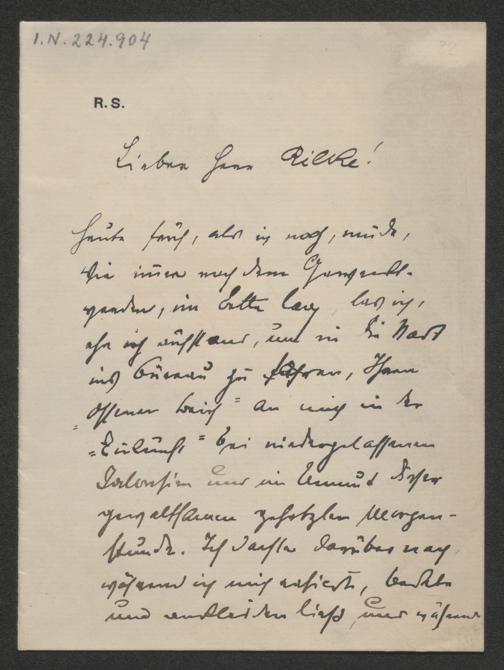 I.N. 224.904
R. S.
Lieber Herr Rilke!
Heute früh, als ich noch, müde,
wie immer nach dem
werden, im Bette lag, las ich,
ehe ich aufstand, um in die Stadt
ins Bureau zu fahren, Ihren
"offenen Brief" an mich in der
"Zukunft" bei niedergelassenen
Jalousien und im dieser
gewaltsamen gehetzten Morgen-
stunde. Ich dachte darüber nach
während ich mich rasierte, badete
und ankleiden ließ, und während